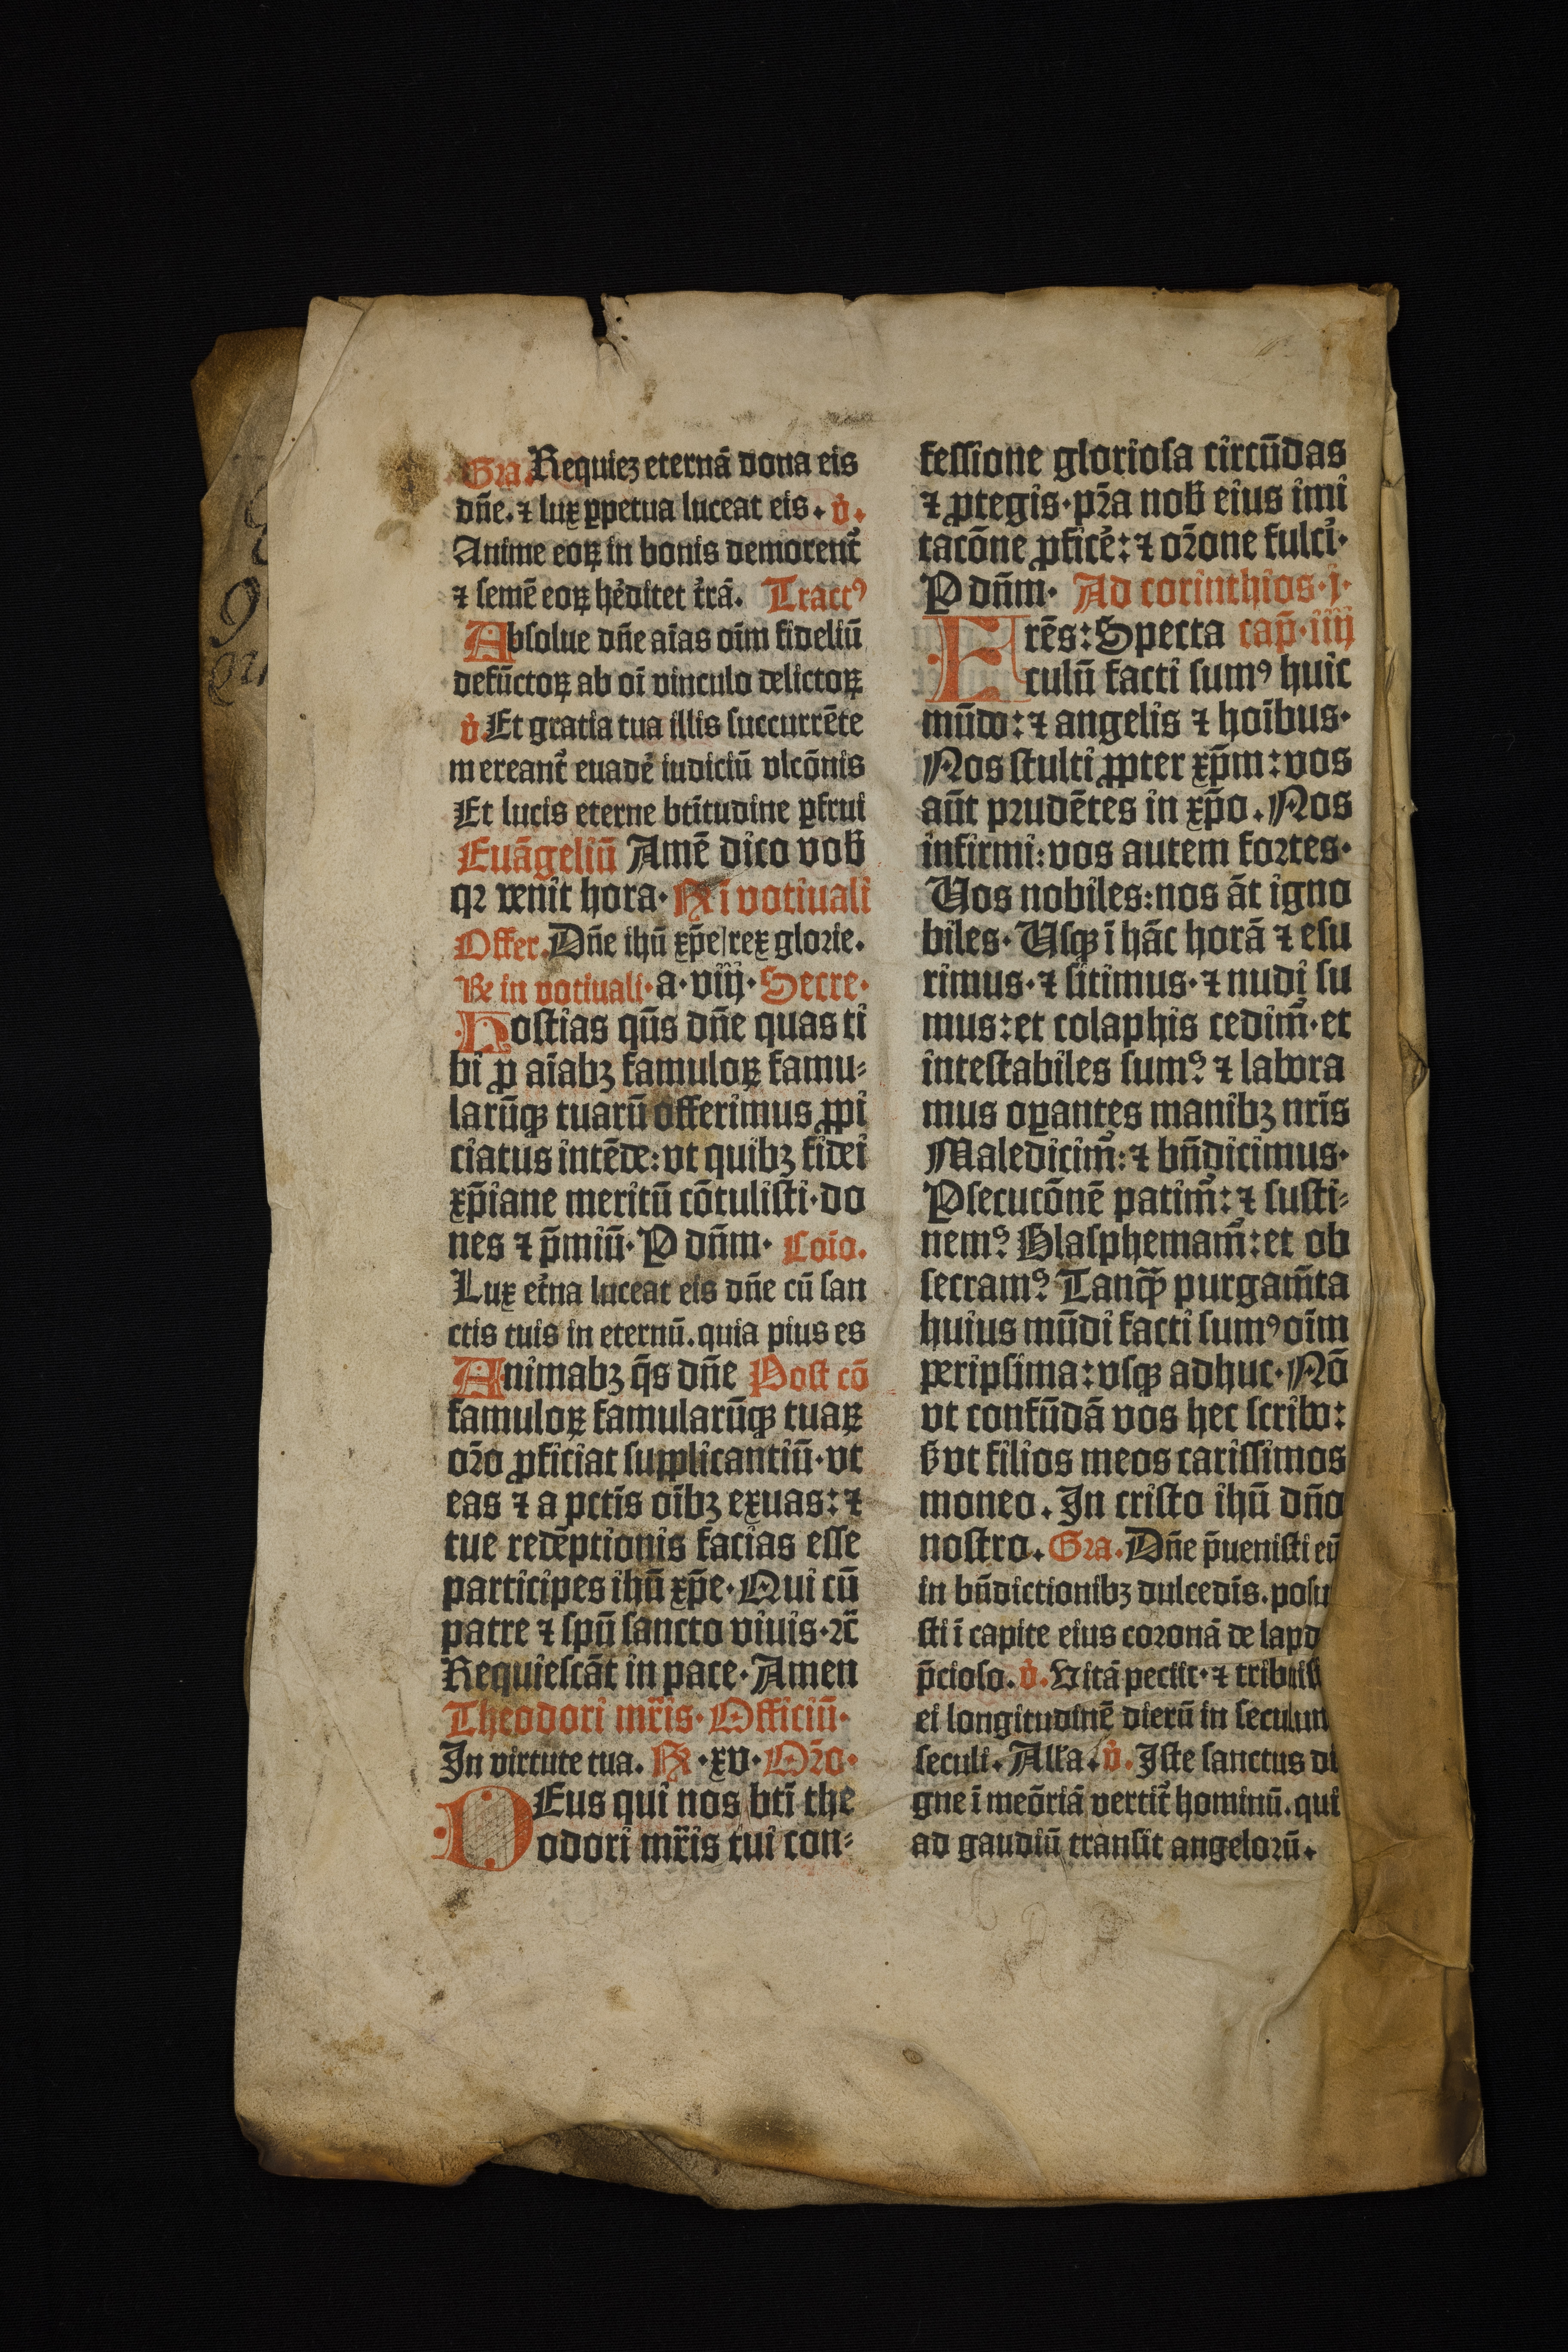 Gra. Requiez eternā dona eis
dn̄e. ⁊ lux ꝑpetua luceat eis. v̇.
Anime eoꝝ in bonis demorent᷑
⁊ semē eoꝝ hẻditet t̉rā. Tractꝰ
Absolue dn̄e aīas oīm fideliū
defūctoꝝ ab oī vinculo delictoꝝ
v̇ Et gratia tua illis succurrēte
mereant᷑ euadẻ iudiciū vlcōnis
Et lucis eterne btītudine ꝑfrui
Euāgeliū Amē dico vob̄
qꝛ venit hora. Rͤ ī votiuali
Offer. Dn̄e ihū xp̄e rex glorie.
Rͤ in votiuali. a. viij. Secre.
Hostias qūs dn̄e quas ti
bi ꝓ aīabꝫ famuloꝝ famu⸗
larūqꝫ tuarū offerimus ꝓpi
ciatus intēde: vt quibꝫ fidei
xp̄iane meritū cōtulisti. do
nes ⁊ p̄miū. P dn̄m. Coīo.
Lux et̉na luceat eis dn̄e cū san
ctis tuis in eternū. quia pius es
Animabꝫ q̄s dn̄e Post cō
famuloꝝ famularūqꝫ tuaꝝ
oꝛ̄o ꝓficiat supplicantiū. vt
eas ⁊ a pctīs oībꝫ exuas: ⁊
tue redēptionis facias esse
participes ihū xp̄e. Qui cū
patre ⁊ spū sancto viuis. ⁊c̄
Requiescāt in pace. Amen
Theodori mr̄is. Officiū.
In virtute tua. Rͤ. xv. Oꝛ̄o.
DEus qui nos btī the
odori mr̄is tui con⸗
fessione gloriosa circūdas
⁊ ꝓtegis. pꝛ̄a nob̄ eius imi
tacōne ꝓficẻ: ⁊ oꝛ̄one fulci᷑.
P dn̄m. Ad corinthios. j.
Frēs: Specta cap̄. iiij
culū facti sumꝰ huic
mūdo: ⁊ angelis ⁊ hoībus.
Nos stulti ꝓpter xp̄m: vos
aūt prudētes in xp̄o. Nos
infirmi: vos autem fortes.
Vos nobiles: nos āt igno
biles. Vsqꝫ ī hāc horā ⁊ esu
rimus. ⁊ sitimus. ⁊ nudi su
mus: et colaphis cedim᷑. et
intestabiles sumꝰ. ⁊ labora
mus oꝑantes manibꝫ nrīs
Maledicim᷑: ⁊ bn̄dicimus.
Psecucōnē patim᷑: ⁊ susti⸗
nemꝰ. Blasphemam᷑: et ob
secramꝰ. Tanqꝫ̄ purgam̄ta
huius mūdi facti sumꝰ oīm
peripsima: vsqꝫ adhuc. Nō
vt confūdā vos hec scribo:
s̄ vt filios meos carissimos
moneo. In cristo ihū dn̄o
nostro. Gra. Dn̄e p̄uenisti eū
in bn̄dictionibꝫ dulcedīs. posu
sti ī capite eius coronā de lapd
p̄cioso. v̇. Vitā petiit. ⁊ tribuis
ei longitudinē dierū in seculum
seculi. Alla. v̇. Iste sanctus di
gne ī meōriā vertit᷑ hominū. qui
ad gaudiū transit angelorū.